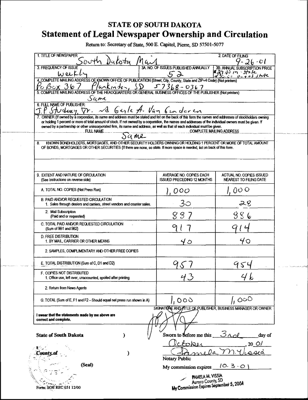 STATE OF SOUTH DAKOTA
Statement of Legal Newspaper Ownership and Circulation
Return to: Secretary of State, 500 E. Capitol, Pierre, SD 57501-5077
1. TITLE OF NEWSPAPER
South Dakota Mail
2. DATE OF FILING
9-26-01
3. FREQUENCY OF ISSUE
Weekly
3A. NO. OF ISSUES PUBLISHED ANNUALLY
52
3B. ANNUAL SUBSCRIPTION PRICE
4. COMPLETE MAILING ADDRESS OF KNOWN OFFICE OF PUBLICATION (Street, City, County, State and ZIP+4 Code) (Not printers)
PO Box 367 Plankinton, SD 57368-0367
5. COMPLETE MAILING ADDRESS OF THE HEADQUARTERS OR GENERAL BUSINESS OFFICES OF THE PUBLISHER (Not printer)
Same
6. FULL NAME OF PUBLISHER
7. OWNER (If owned by a corporation, its name and address must be stated and list on the back of this form the names and addresses of stockholders owning
or holding 1 percent or more of total amount of stock. If not owned by a corporation, the names and addresses of the individual owners must be given. If
owned by a partnership or other unincorporated firm, its name and address, as well as that of each individual must be given.
FULL NAME
COMPLETE MAILING ADDRESS
Same
8. KNOWN BONDHOLDERS, MORTGAGEES, AND OTHER SECURITY HOLDERS OWNING OR HOLDING 1 PERCENT OR MORE OF TOTAL AMOUNT
OF BONDS, MORTGAGES OR OTHER SECURITIES (If there are none, so state. If more space is needed, list on back of this form.
9. EXTENT AND NATURE OF CIRCULATION
(See instructions on reverse side)
AVERAGE NO. COPIES EACH
ISSUED PRECEDING 12 MONTHS
ACTUAL NO. COPIES ISSUED
NEAREST TO FILING DATE
A. TOTAL NO. COPIES (Net Press Run)
1,000
1,000
B. PAID AND/OR REQUESTED CIRCULATION
1. Sales through dealers and carriers, street vendors and counter sales
30
28
2. Mail Subscription
(Paid and or requested)
887
886
C. TOTAL PAID AND/OR REQUESTED CIRCULATION
(Sum of 9B1 and 9B2)
917
914
D. FREE DISTRIBUTION
1. BY MAIL, CARRIER OR OTHER MEANS
40
40
2. SAMPLES, COMPLIMENTARY AND OTHER FREE COPIES
E. TOTAL DISTRIBUTION (Sum of C, D1 and D2)
957
954
F. COPIES NOT DISTRIBUTED
1. Office use, left over, unaccounted, spoiled after printing
43
46
2. Return from News Agents
G. TOTAL (Sum of E, F1 and F2 - Should equal net press run shown in A)
1,000
1,000
I swear that the statements made by me above are
correct and complete.
SIGNATURE AND TITLE OF PUBLISHER, BUSINESS MANAGER OR OWNER
State of South Dakota
Sworn to before me this 3rd day of
October 2001
County of
Notary Public
(Seal)
My commission expires 10-3-01
PAMELA M. VISSIA
Aurora County, SD
My Commission Expires September 5, 2004